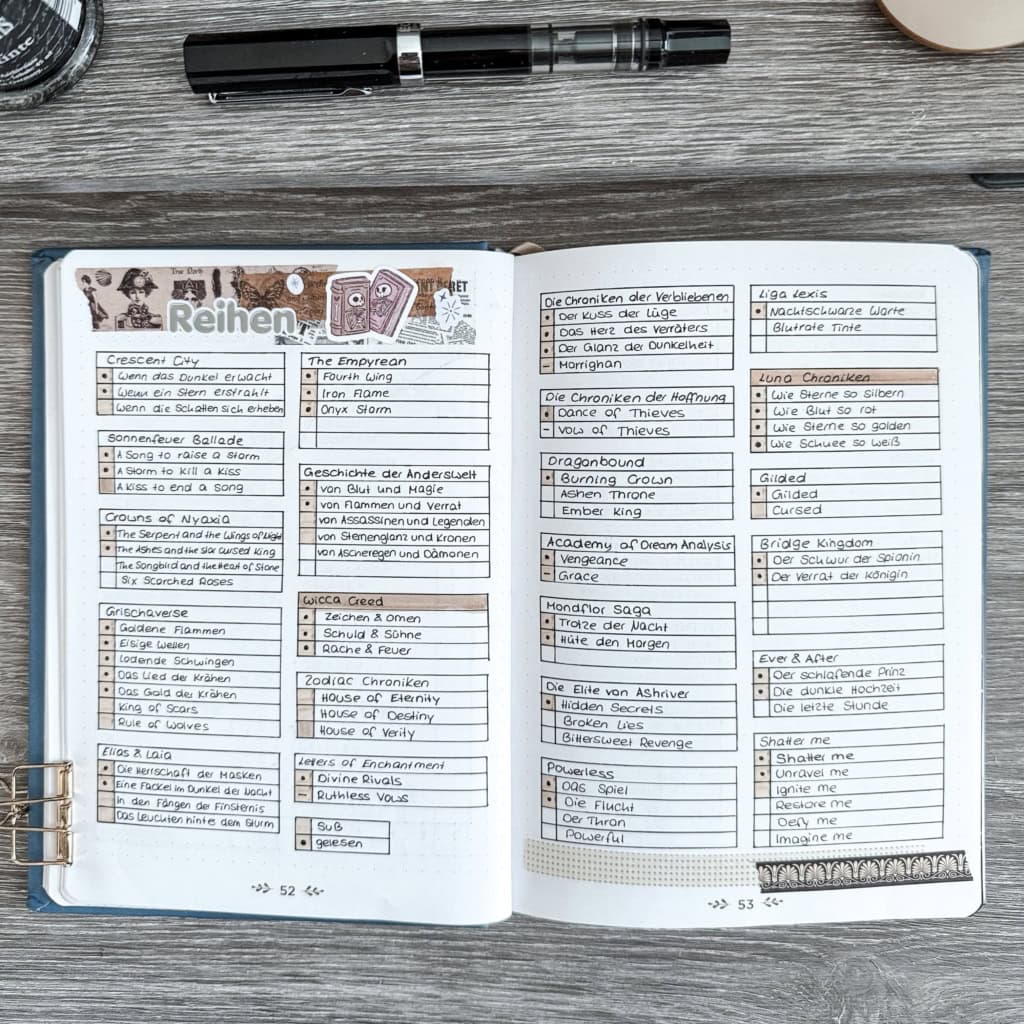 Reihen
Crescent City
• Wenn das Dunkel erwacht
• Wenn ein Stern erstrahlt
Wenn die Schatten sich erheben
Sonnenfeuer Ballade
• A Song to raise a storm
• A Storm to kill a kiss
A kiss to end a song
Crowns of Nyaxia
• The Serpent and the Wings of Night
• The Ashes and the star cursed King
The Songbird and the Heart of Stone
Six Scorched Roses
Grischaverse
• Goldene Flammen
• Eisige Wellen
• Lodernde Schwingen
• Das Lied der Krähen
• Das Gold der Krähen
King of Scars
Rule of Wolves
Elias & Laia
• Die Herrschaft der Masken
• Eine Fackel im Dunkel der Nacht
In den Fängen der Finsternis
Das Leuchten hinte dem Sturm
The Empyrean
• Fourth Wing
• Iron Flame
• Onyx Storm
Geschichte der Anderswelt
• von Blut und Magie
• von Flammen und Verrat
von Assassinen und Legenden
von Sternenglanz und Kronen
von Ascheregen und Dämonen
Wicca Creed
• Zeichen & Omen
• Schuld & Sühne
• Rache & Feuer
Zodiac Chroniken
House of Eternity
House of Destiny
House of Verity
Letters of Enchantment
• Divine Rivals
– Ruthless Vows
SuB
• gelesen
52
Die Chroniken der Verbliebenen
• Der Kuss der Lüge
• Das Herz des Verräters
• Der Glanz der Dunkelheit
– Morrighan
Die Chroniken der Hoffnung
• Dance of Thieves
– Vow of Thieves
Dragonbound
• Burning Crown
Ashen Throne
Ember King
Academy of Dream Analysis
• Vengeance
– Grace
Mondflor Saga
• Trotze der Nacht
• Hüte den Morgen
Die Elite von Ashriver
• Hidden Secrets
Broken Lies
Bittersweet Revenge
Powerless
• Das Spiel
• Die Flucht
Der Thron
Powerful
Liga Lexis
• Nachtschwarze Worte
Blutrote Tinte
Luna Chroniken
• Wie Sterne so silbern
• Wie Blut so rot
• Wie Sterne so golden
• Wie Schnee so weiß
Gilded
• Gilded
Cursed
Bridge Kingdom
• Der Schwur der Spionin
• Der Verrat der Königin
Ever & After
• Der schlafende Prinz
• Die dunkle Hochzeit
Die letzte Stunde
Shatter me
• Shatter me
• Unravel me
Ignite me
Restore me
Defy me
Imagine me
53